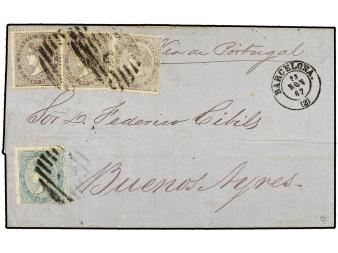 Via de Portugal
BARCELONA.
23
NOV
67
(2)
Sor D. Federico Cibils
Buenos Ayres